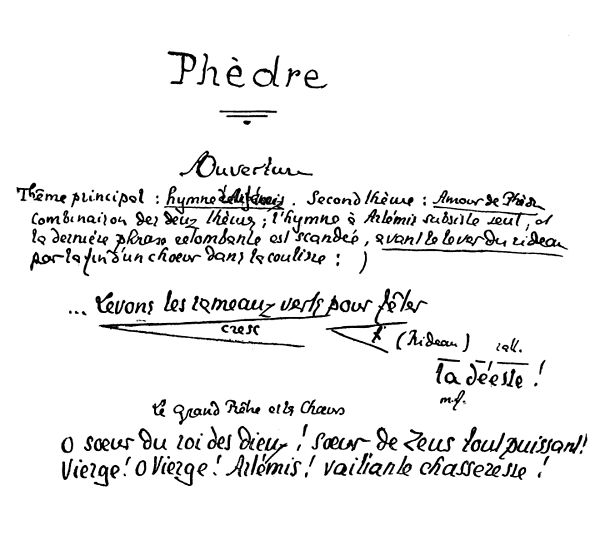 Phèdre
Ouverture
Thème principal : hymne à Artémis. Second thème : Amour de Phèdre
Combinaison des deux thèmes ; l'hymne à Artémis subsiste seul, et
la dernière phrase retombante est scandée, avant le lever du rideau
par la fin d'un choeur dans la coulisse : )
... Levons les rameaux verts pour fêler
cresc
f (Rideau) rall.
la déesse !
mf.
Le grand Prêtre et les Choeurs
O sœur du roi des dieux ! sœur de Zeus tout puissant !
Vierge ! O Vierge ! Artémis ! vaillante chasseresse !